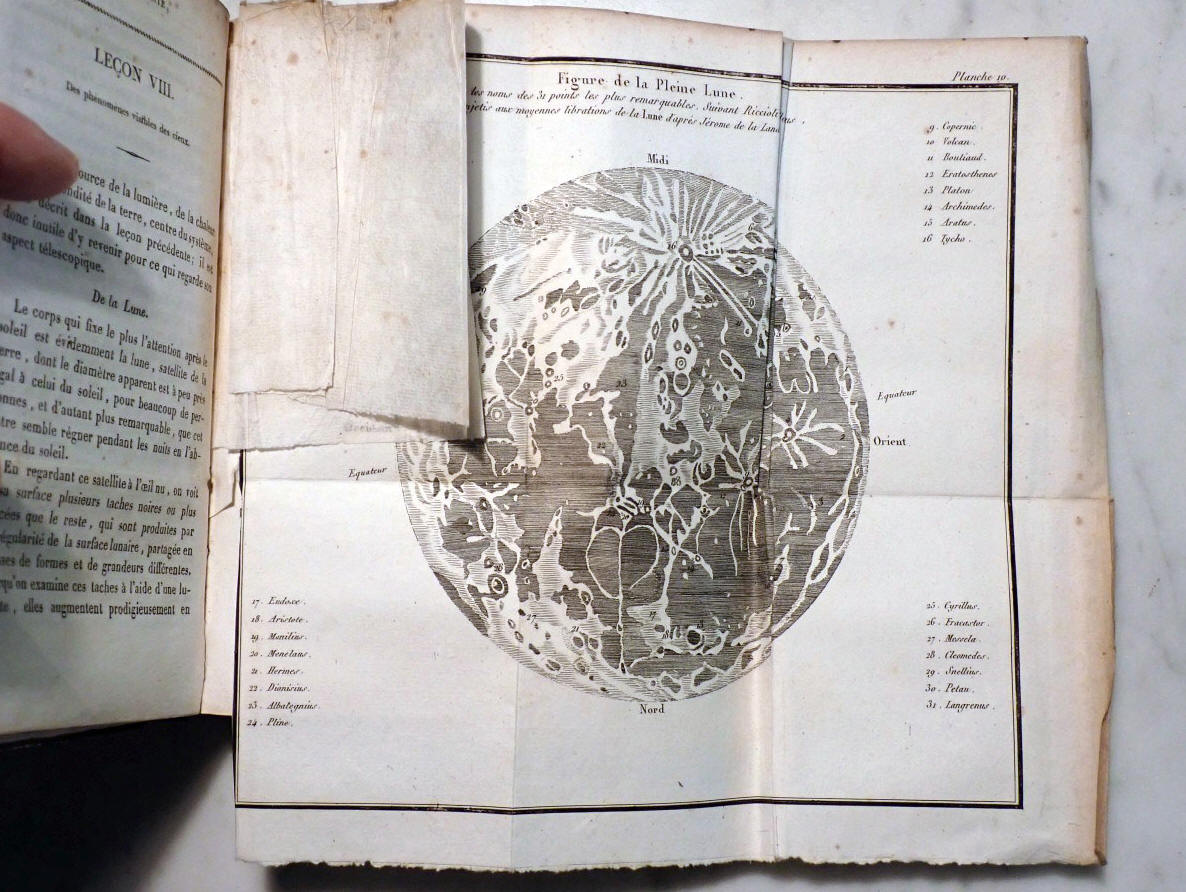 LEÇON VIII.
Des phénomènes visibles des cieux.
ource de la lumière, de la chaleur
ndité de la terre, centre du système,
décrit dans la leçon précédente; il est
donc inutile d'y revenir pour ce qui regarde son
aspect télescopique.
De la Lune.
Le corps qui fixe le plus l'attention après le
soleil est évidemment la lune, satellite de la
erre, dont le diamètre apparent est à peu près
gal à celui du soleil, pour beaucoup de per-
onnes, et d'autant plus remarquable, que cet
tre semble régner pendant les nuits en l'ab-
nce du soleil.
En regardant ce satellite à l'œil nu, on voit
sa surface plusieurs taches noires ou plus
cées que le reste, qui sont produites par
égularité de la surface lunaire, partagée en
ses de formes et de grandeurs différentes.
qu'on examine ces taches à l'aide d'une lu-
te, elles augmentent prodigieusement en
Planche 10.
Figure de la Pleine Lune.
les noms des 31 points les plus remarquables. Suivant Ricciolius,
jetis aux moyennes librations de la Lune d'après Jérome de la Land
Midi
9. Copernic.
10 Volcan.
11 Bouliaud.
12 Eratosthenes
13 Platon
14 Archimedes.
15 Aratus.
16 Tycho.
Equateur
Orient
Occident
Equateur
17. Eudoxe.
18. Aristote.
19. Manilius.
20. Menelaus.
21. Hermes.
22. Dionisius.
23. Albategnius.
24. Pline.
25. Cyrillus.
26. Fracastor.
27. Messela.
28. Cleomedes.
29. Snellius.
30. Petau.
31. Langrenus.
Nord